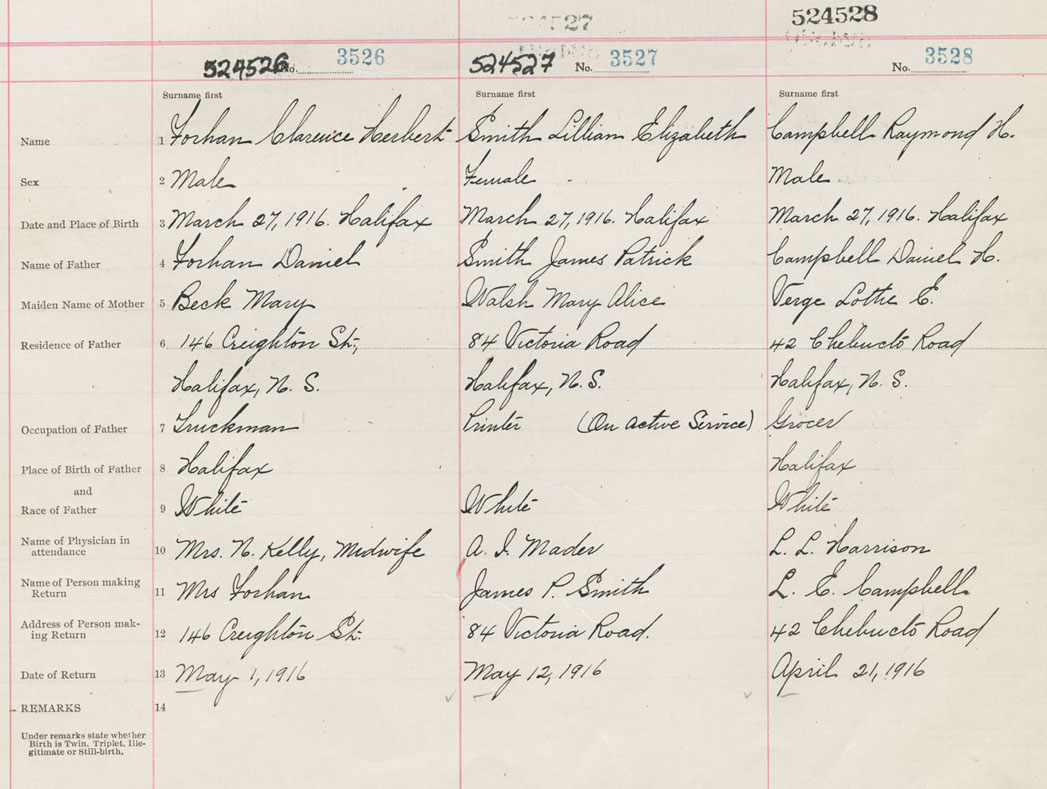 524527
524528
524526 No. 3526
524527 No. 3527
No. 3528
Surname first Surname first Surname first
Name 1 Forhan Clarence Herbert Smith Lillian Elizabeth Campbell Raymond H.
Sex 2 Male Female Male
Date and Place of Birth 3 March 27, 1916. Halifax March 27, 1916. Halifax March 27, 1916. Halifax
Name of Father 4 Forhan Daniel Smith James Patrick Campbell Daniel H.
Maiden Name of Mother 5 Beck Mary Walsh Mary Alice Verge Lottie E.
Residence of Father 6 146 Creighton St., 84 Victoria Road 42 Chebucto Road
Halifax, N. S. Halifax, N. S. Halifax, N. S.
Occupation of Father 7 Truckman Printer (On active Service) Grocer
Place of Birth of Father 8 Halifax Halifax
and
Race of Father 9 White White White
Name of Physician in
attendance 10 Mrs. N. Kelly, Midwife A. I. Mader L. L. Harrison
Name of Person making
Return 11 Mrs Forhan James P. Smith L. E. Campbell
Address of Person mak-
ing Return 12 146 Creighton St. 84 Victoria Road. 42 Chebucto Road
Date of Return 13 May 1, 1916 May 12, 1916 April 21, 1916
REMARKS 14
Under remarks state whether
Birth is Twin, Triplet, Ille-
gitimate or Still-birth.